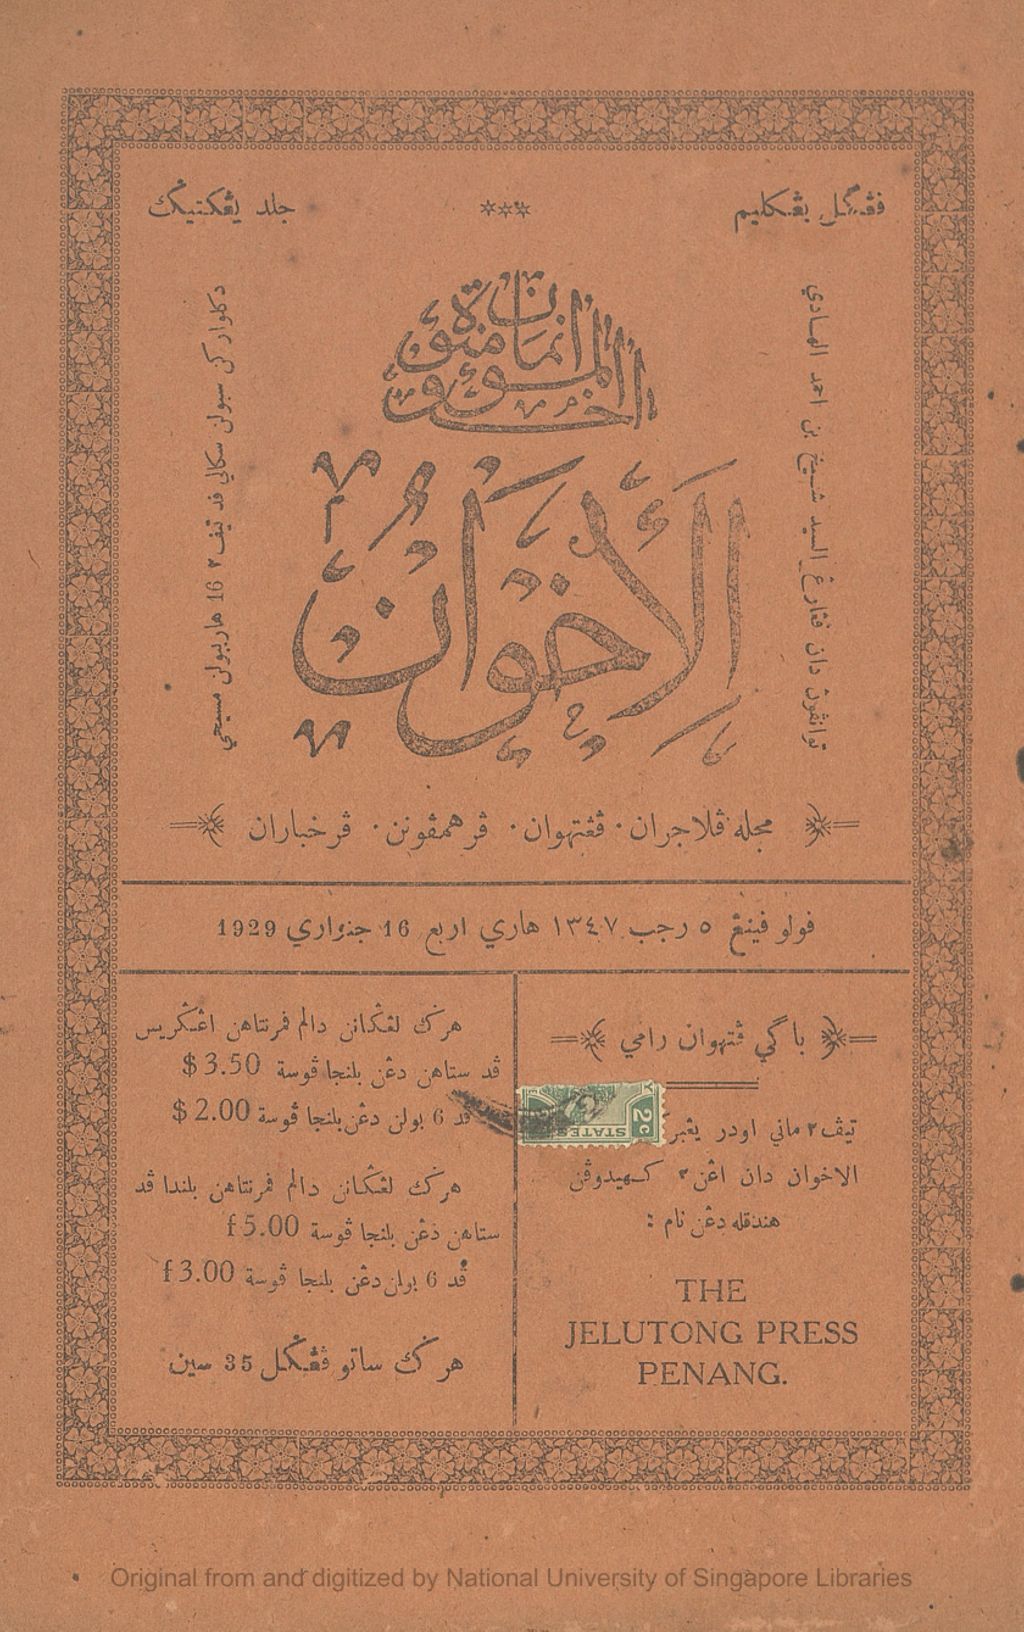 ڤڠݢل يڠكليم
*** 
جلد يڠكتيݢ
انما المؤمنون اخوة
الإخوان
توانڤوڽ دان ڤڠارڠ السيد شيخ بن احمد الهادي
دكلواركن سبولن سكالي ڤد تيڤ٢ 16 هاريبولن مسيحي
مجله ڤلاجران · ڤڠتهوان · ڤرهمڤونن · ڤرخباران
ڤولو ڤينڠ ٥ رجب ١٣٤٧ هاري اربع 16 جنواري 1929
باݢي ڤڠتهوان رامي
تيڤ٢ ماني اودر يڠبر
الاخوان دان اڠن٢ كهيدوڤن
هندقله دڠن نام :
THE
JELUTONG PRESS
PENANG.
هرݢ لڠݢانن دالم ڤرنتاهن اڠݢريس
ڤد ستاهن دڠن بلنجا ڤوسة 3.50 $
ڤد 6 بولن دڠن بلنجا ڤوسة 2.00 $
هرݢ لڠݢانن دالم ڤرنتاهن بلندا ڤد
ستاهن دڠن بلنجا ڤوسة f 5.00
ڤد 6 بولن دڠن بلنجا ڤوسة f 3.00
هرݢ ساتو ڤڠݢل 35 سين
2c
STATES
Original from and digitized by National University of Singapore Libraries